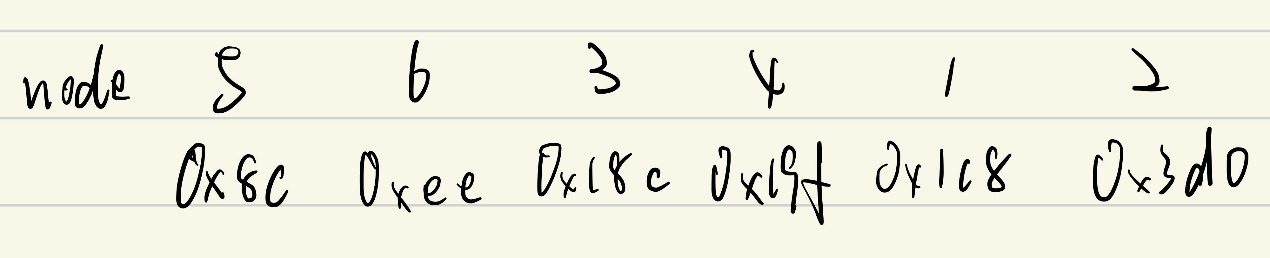 node 5 6 3 4 1 2
0x8c 0xee 0x18c 0x19f 0x1c8 0x3d0